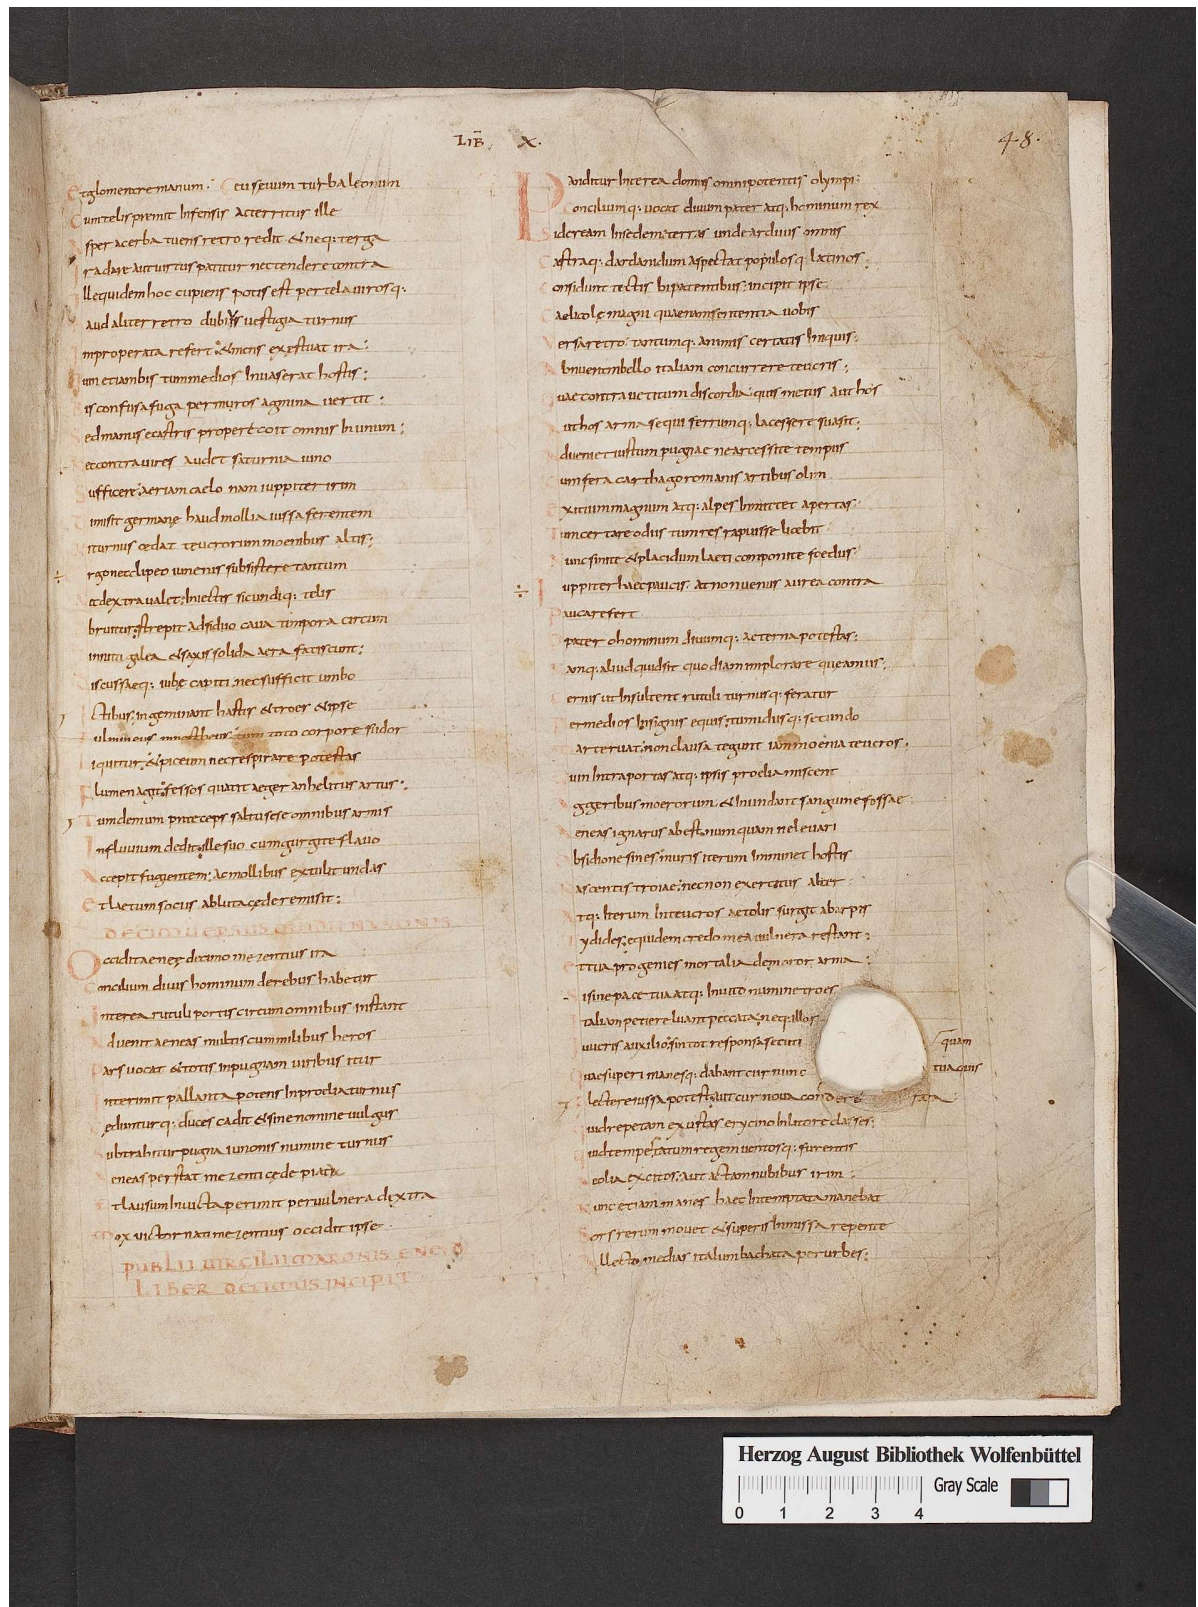 LIB X.
48.
Et glomerare manum. Ceu seuum turba leonum
Cum telis premit Infensis Acterritus ille
Asper acerba tuens retro redit & neq; terga
Ira dare aut uirtus patitur nec tendere contra
Ille quidem hoc cupiens potis est per tela uirosq;
Haud aliter retro dubius uestigia turnus
Inproperata refert & mens exestuat ira:
Quin etiam bis tum medios Inuaserat hostis:
Bis confusa fuga per muros agmina uertit:
Sed manus e castris propere coit omnis In unum:
Nec contra uires audet saturnia iuno
Sufficere aeriam caelo nam iuppiter irim
Dimisit germane haud mollia iussa ferentem
Ni turnus cedat teucrorum moenibus altis;
Ergo nec clipeo iuuenis subsistere tantum
Nec dextra ualet: Iniectis sic undiq; telis
Obruitur: strepit adsiduo caua timpora circum
Tinnitu galea & saxis solida aera fatiscunt:
Discussaeq; iube capiti nec sufficit umbo
Ictibus ingeminant hastis & troes & ipse
Fulmineus mnestheus tum toto corpore sudor
Liquitur & piceum nec respirare potestas
Flumen agit: fessos quatit aeger anhelitus artus:
Tum demum praeceps saltu sese omnibus armis
In fluuium dedit: ille suo cum gurgite flauo
Accepit fugientem: ac mollibus extulit undas
Et laetum sociis abluta cede remisit:
Occidit aeneę decimo mezentius ira
Concilium diuis hominum de rebus habetur
Interea rutuli portis circum omnibus instant
Aduenit aeneas multis cum milibus heros
Mars uocat & totis in pugnam uiribus itur
Interimit pallanta potens In proelia turnus
Cęduntur q; duces cadit & sine nomine uulgus
Subtrahitur pugna iunonis numine turnus
Aeneas perstat mezenti cęde piata
Et lausum Inuicta perimit per uulnera dextra
Mox uictor nati mezentius occidit ipse
PUBLII UIRGILII MARONIS ENEID
LIBER DECIMUS INCIPIT
Panditur Interea domus omnipotentis olympi:
Conciliumq; uocat diuum pater atq; hominum rex
Sideream In sedem: terras unde arduus omnis
Castraq; dardanidum aspectat populosq; latinos.
Considunt tectis bipatentibus: incipit ipse
Caelicolę magni quaenam sententia uobis
Versa retro tantumq; animis certatis Iniquis:
Abnueram bello italiam concurrere teucris:
Quae contra uetitum discordia quis metus aut hos
Aut hos arma sequi ferrumq; lacessere suasit:
Adueniet iustum pugnae ne arcessite tempus
Cum fera carthago romanis artibus olim
Exitium magnum atq; alpes Inmittet apertas
Tum certare odiis tum res rapuisse licebit
Nunc sinite & placidum laeti componite foedus
Iuppiter haec paucis: at non uenus aurea contra
Pauca refert
O pater o hominum diuumq; aeterna potestas:
Namq; aliud quid sit quod iam implorare queamus:
Cernis ut Insultent rutuli turnusq; feratur
Per medios Insignis equis; tumidusq; secundo
Marte ruat: non clausa tegunt iam moenia teucros.
Quin Intra portas atq; ipsis proelia miscent
Aggeribus moerorum & Inundant sanguine fossae
Aeneas ignarus abest: numquam ne leuari
Obsidione sines muris iterum Imminet hostis
Nascentis troiae: nec non exercitus alter
Atq; Iterum In teucros aetolis surgit ab arpis
Tydides: equidem credo mea uulnera restant:
Et tua progenies mortalia demoror arma
Si sine pace tua atq; Inuito numine troes
Italiam petiere luant peccata neq; illos
Iuueris auxilio: sin tot responsa secuti quam
Quae superi manesq; dabant cur nunc tua quis
Flectere iussa potest aut cur noua condere fata
Quid repetam exustas erycino In litore classes:
Quid tempestatum regem uentosq; furentis
Aeolia excitos: aut actam nubibus irim:
Nunc etiam manes haec Intemptata manebat
Sors rerum mouet & superis Inmissa repente
Allecto medias italum bachata per urbes:
Herzog August Bibliothek Wolfenbüttel
Gray Scale
0 1 2 3 4